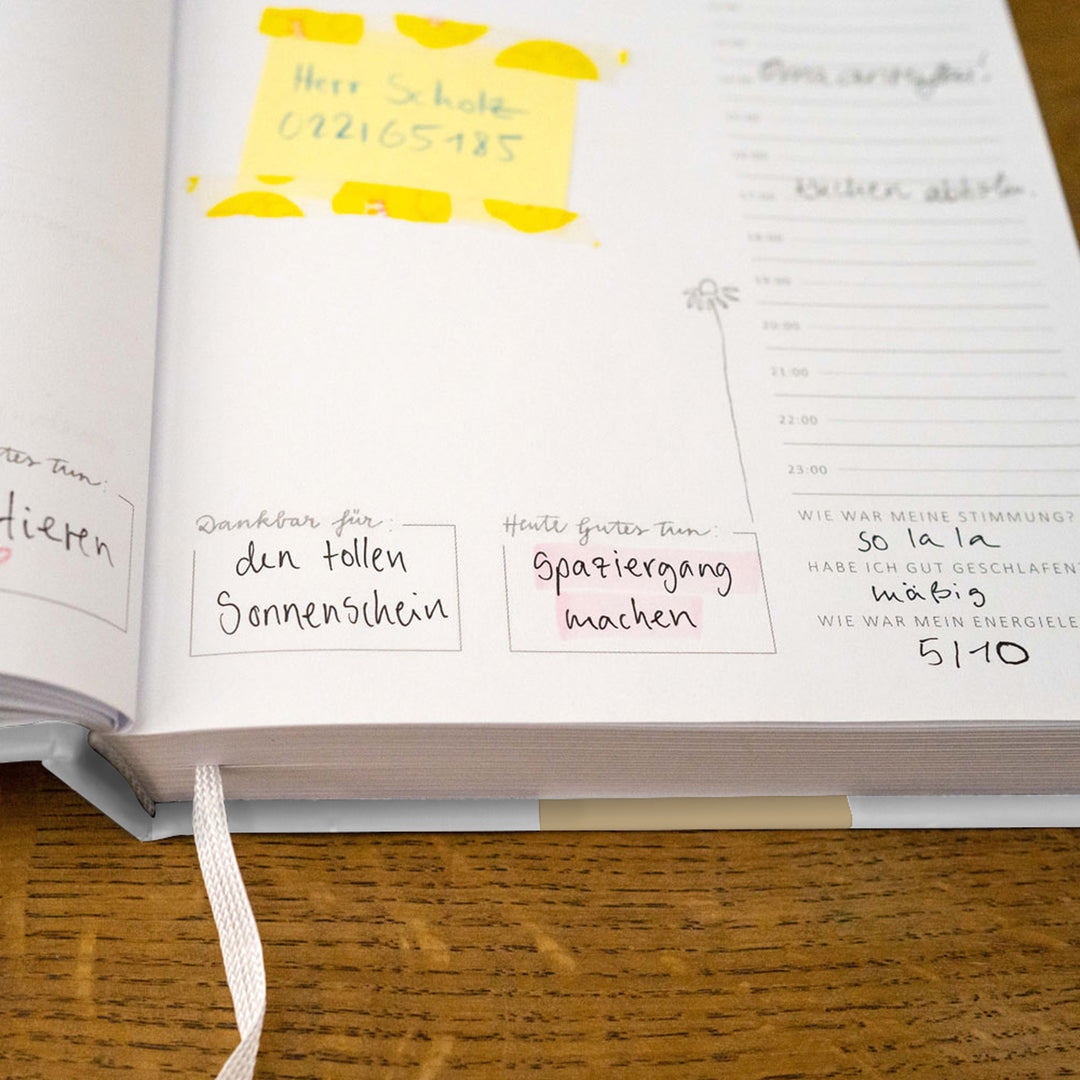 Herr Scholz
022165185
Oma anrufen!
Kuchen abholen
18:00
19:00
20:00
21:00
22:00
23:00
tes tun:
tieren
Dankbar für:
den tollen
Sonnenschein
Heute Gutes tun:
Spaziergang
machen
WIE WAR MEINE STIMMUNG?
so la la
HABE ICH GUT GESCHLAFEN?
mäßig
WIE WAR MEIN ENERGIELE
5/10